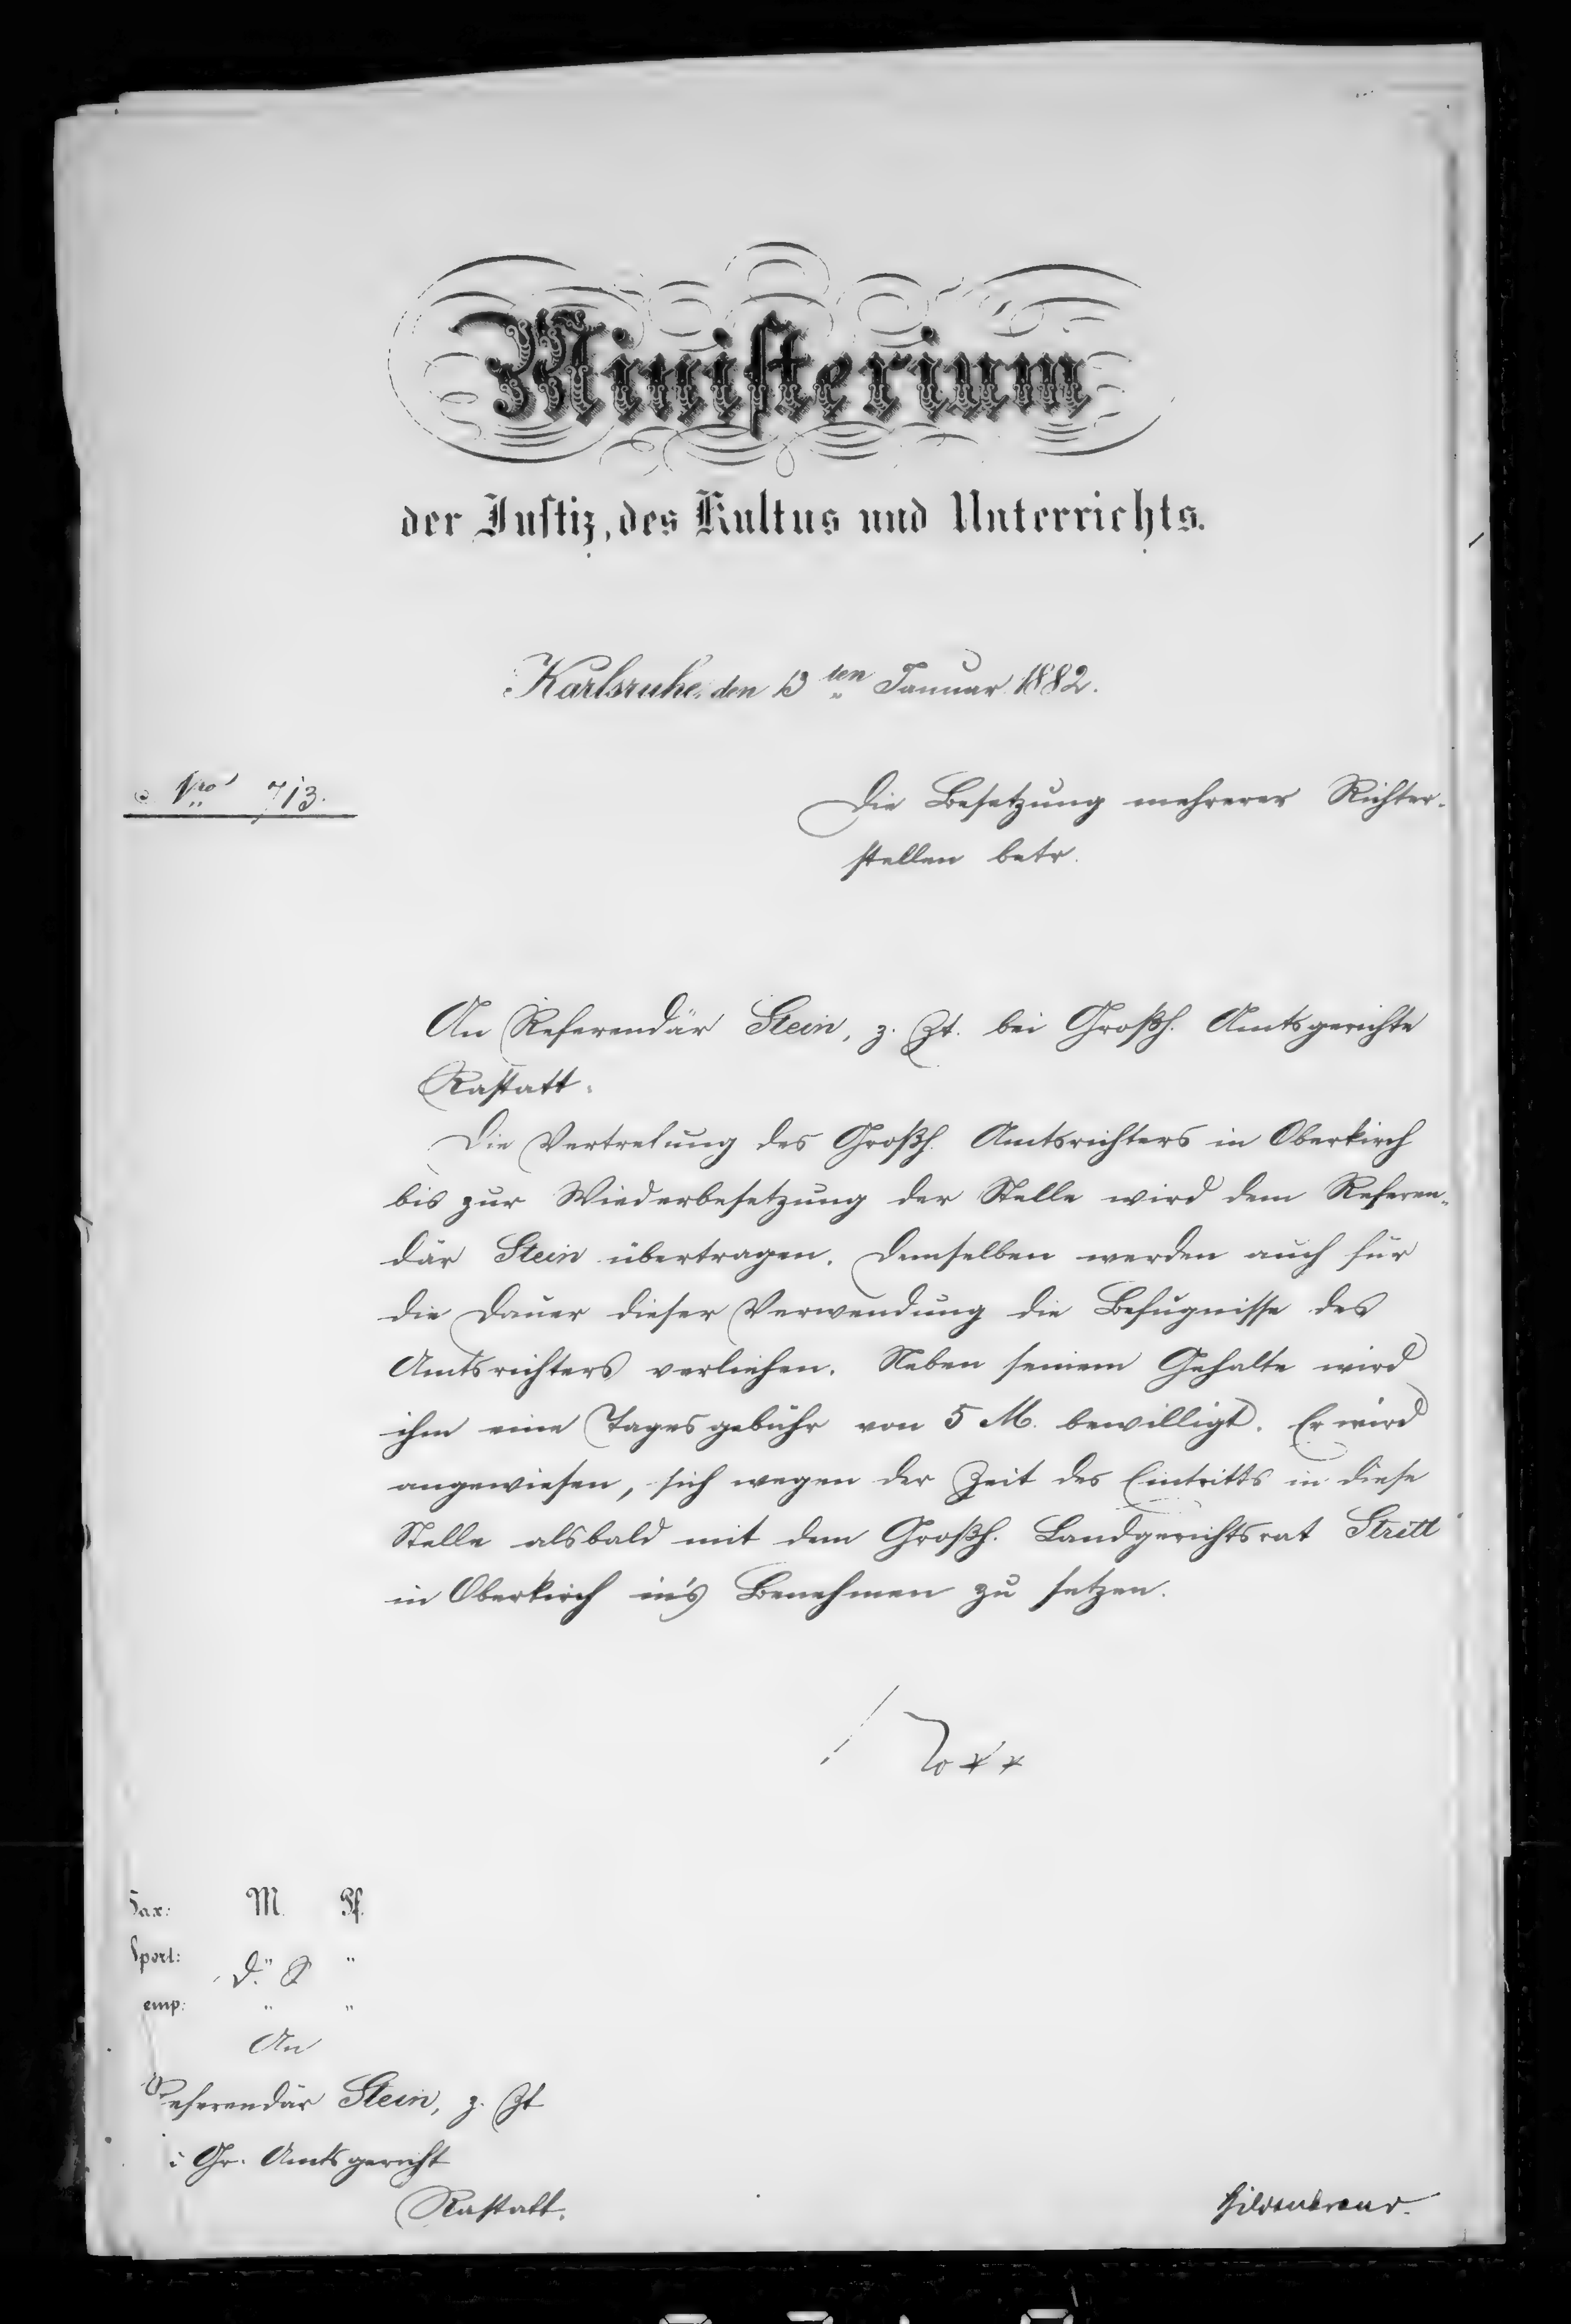 Ministerium
der Justiz, des Kultus und Unterrichts.
Karlsruhe, den 13ten Januar 1882.
Nro 713.
Die Besetzung mehrerer Richter-
stellen betr.
An Referendär Stein, z. Zt. bei Großh. Amtsgerichte
Rastatt.
Die Vertretung des Großh. Amtsrichters in Oberkirch
bis zur Wiederbesetzung der Stelle wird dem Referen-
där Stein übertragen. Demselben werden auch für
die Dauer dieser Verwendung die Befugnisse des
Amtsrichters verliehen. Neben seinem Gehalte wird
ihm eine Tagesgebühr von 5 M. bewilligt. Er wird
angewiesen, sich wegen der Zeit des Eintritts in diese
Stelle alsbald mit dem Großh. Landgerichtsrat Stritt
in Oberkirch in's Benehmen zu setzen.
Nokk
Tax: M. Pf.
Sport: D. S. "
emp: " "
An
Referendär Stein, z. Zt
Gr. Amtsgericht
Rastatt.
Hildenbrand.